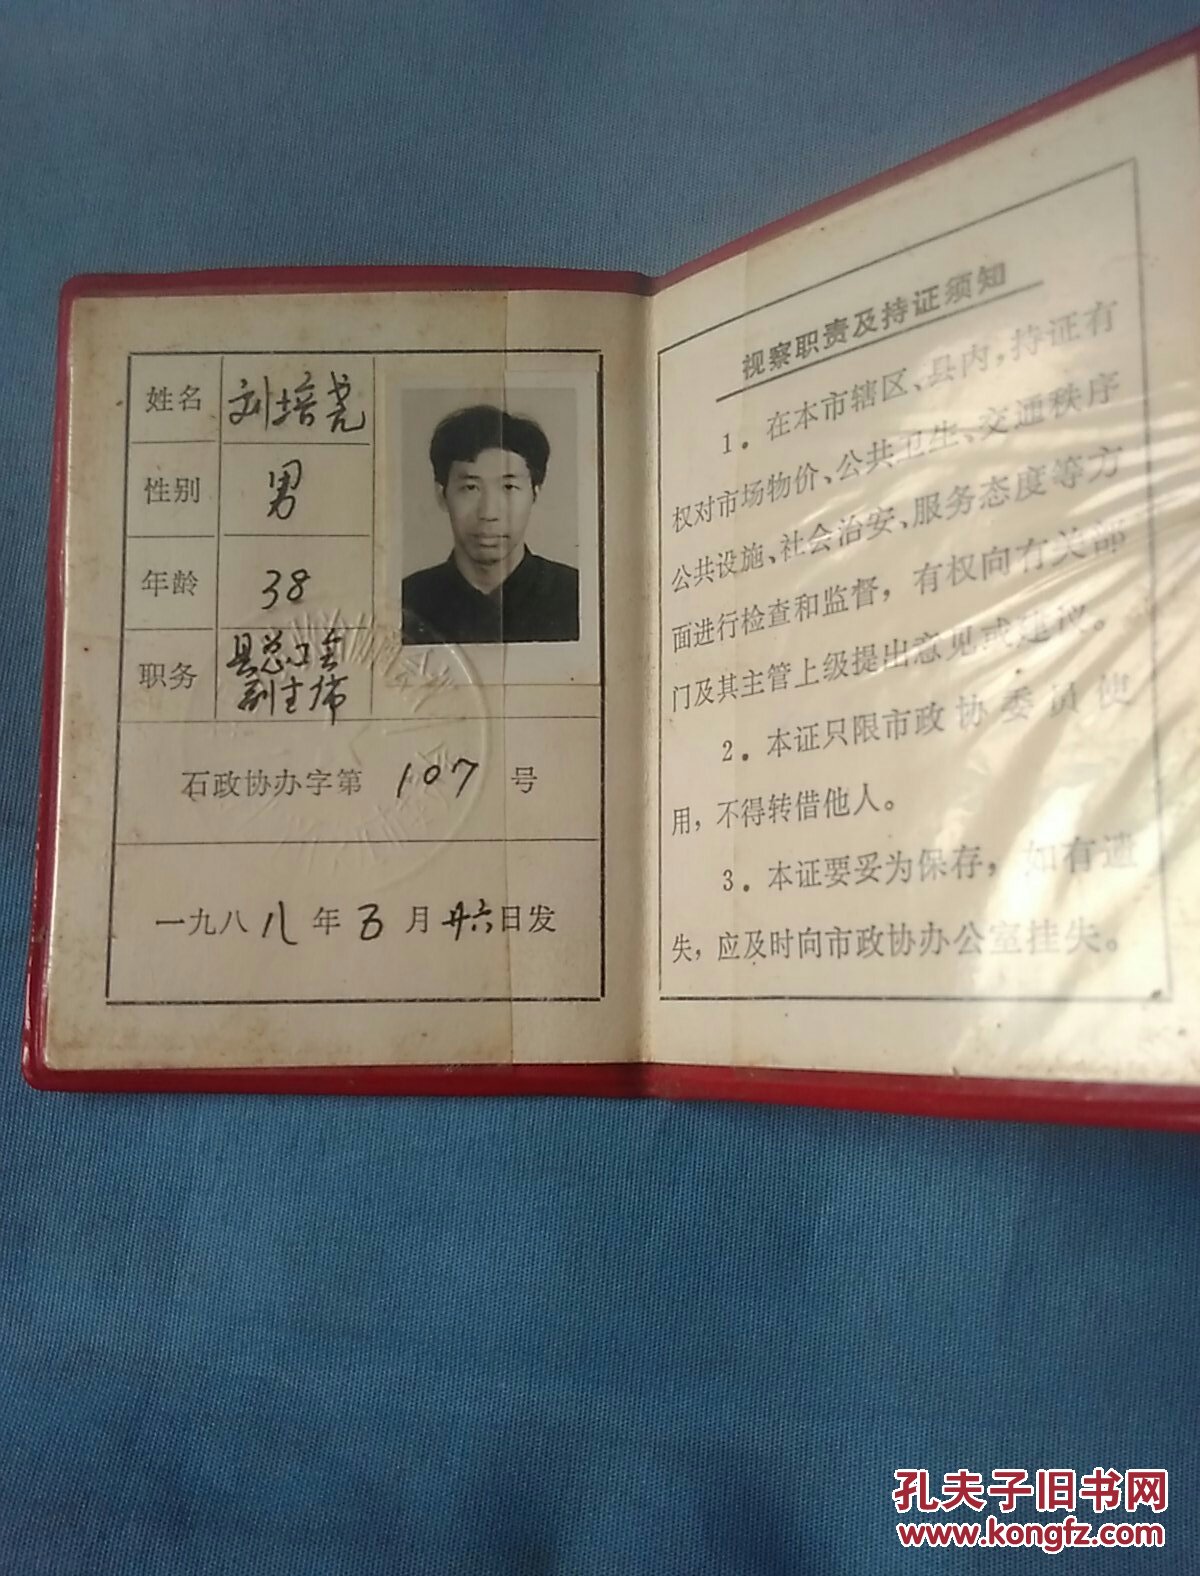 姓名 刘培尧
性别 男
年龄 38
职务 县总工会
副主席
石政协办字第 107 号
一九八八年5月廿六日发
视察职责及持证须知
1．在本市辖区、县内，持证有
权对市场物价、公共卫生、交通秩序
公共设施、社会治安、服务态度等方
面进行检查和监督，有权向有关部
门及其主管上级提出意见或建议。
2．本证只限市政协委员使
用，不得转借他人。
3．本证要妥为保存，如有遗
失，应及时向市政协办公室挂失。
孔夫子旧书网
www.kongfz.com